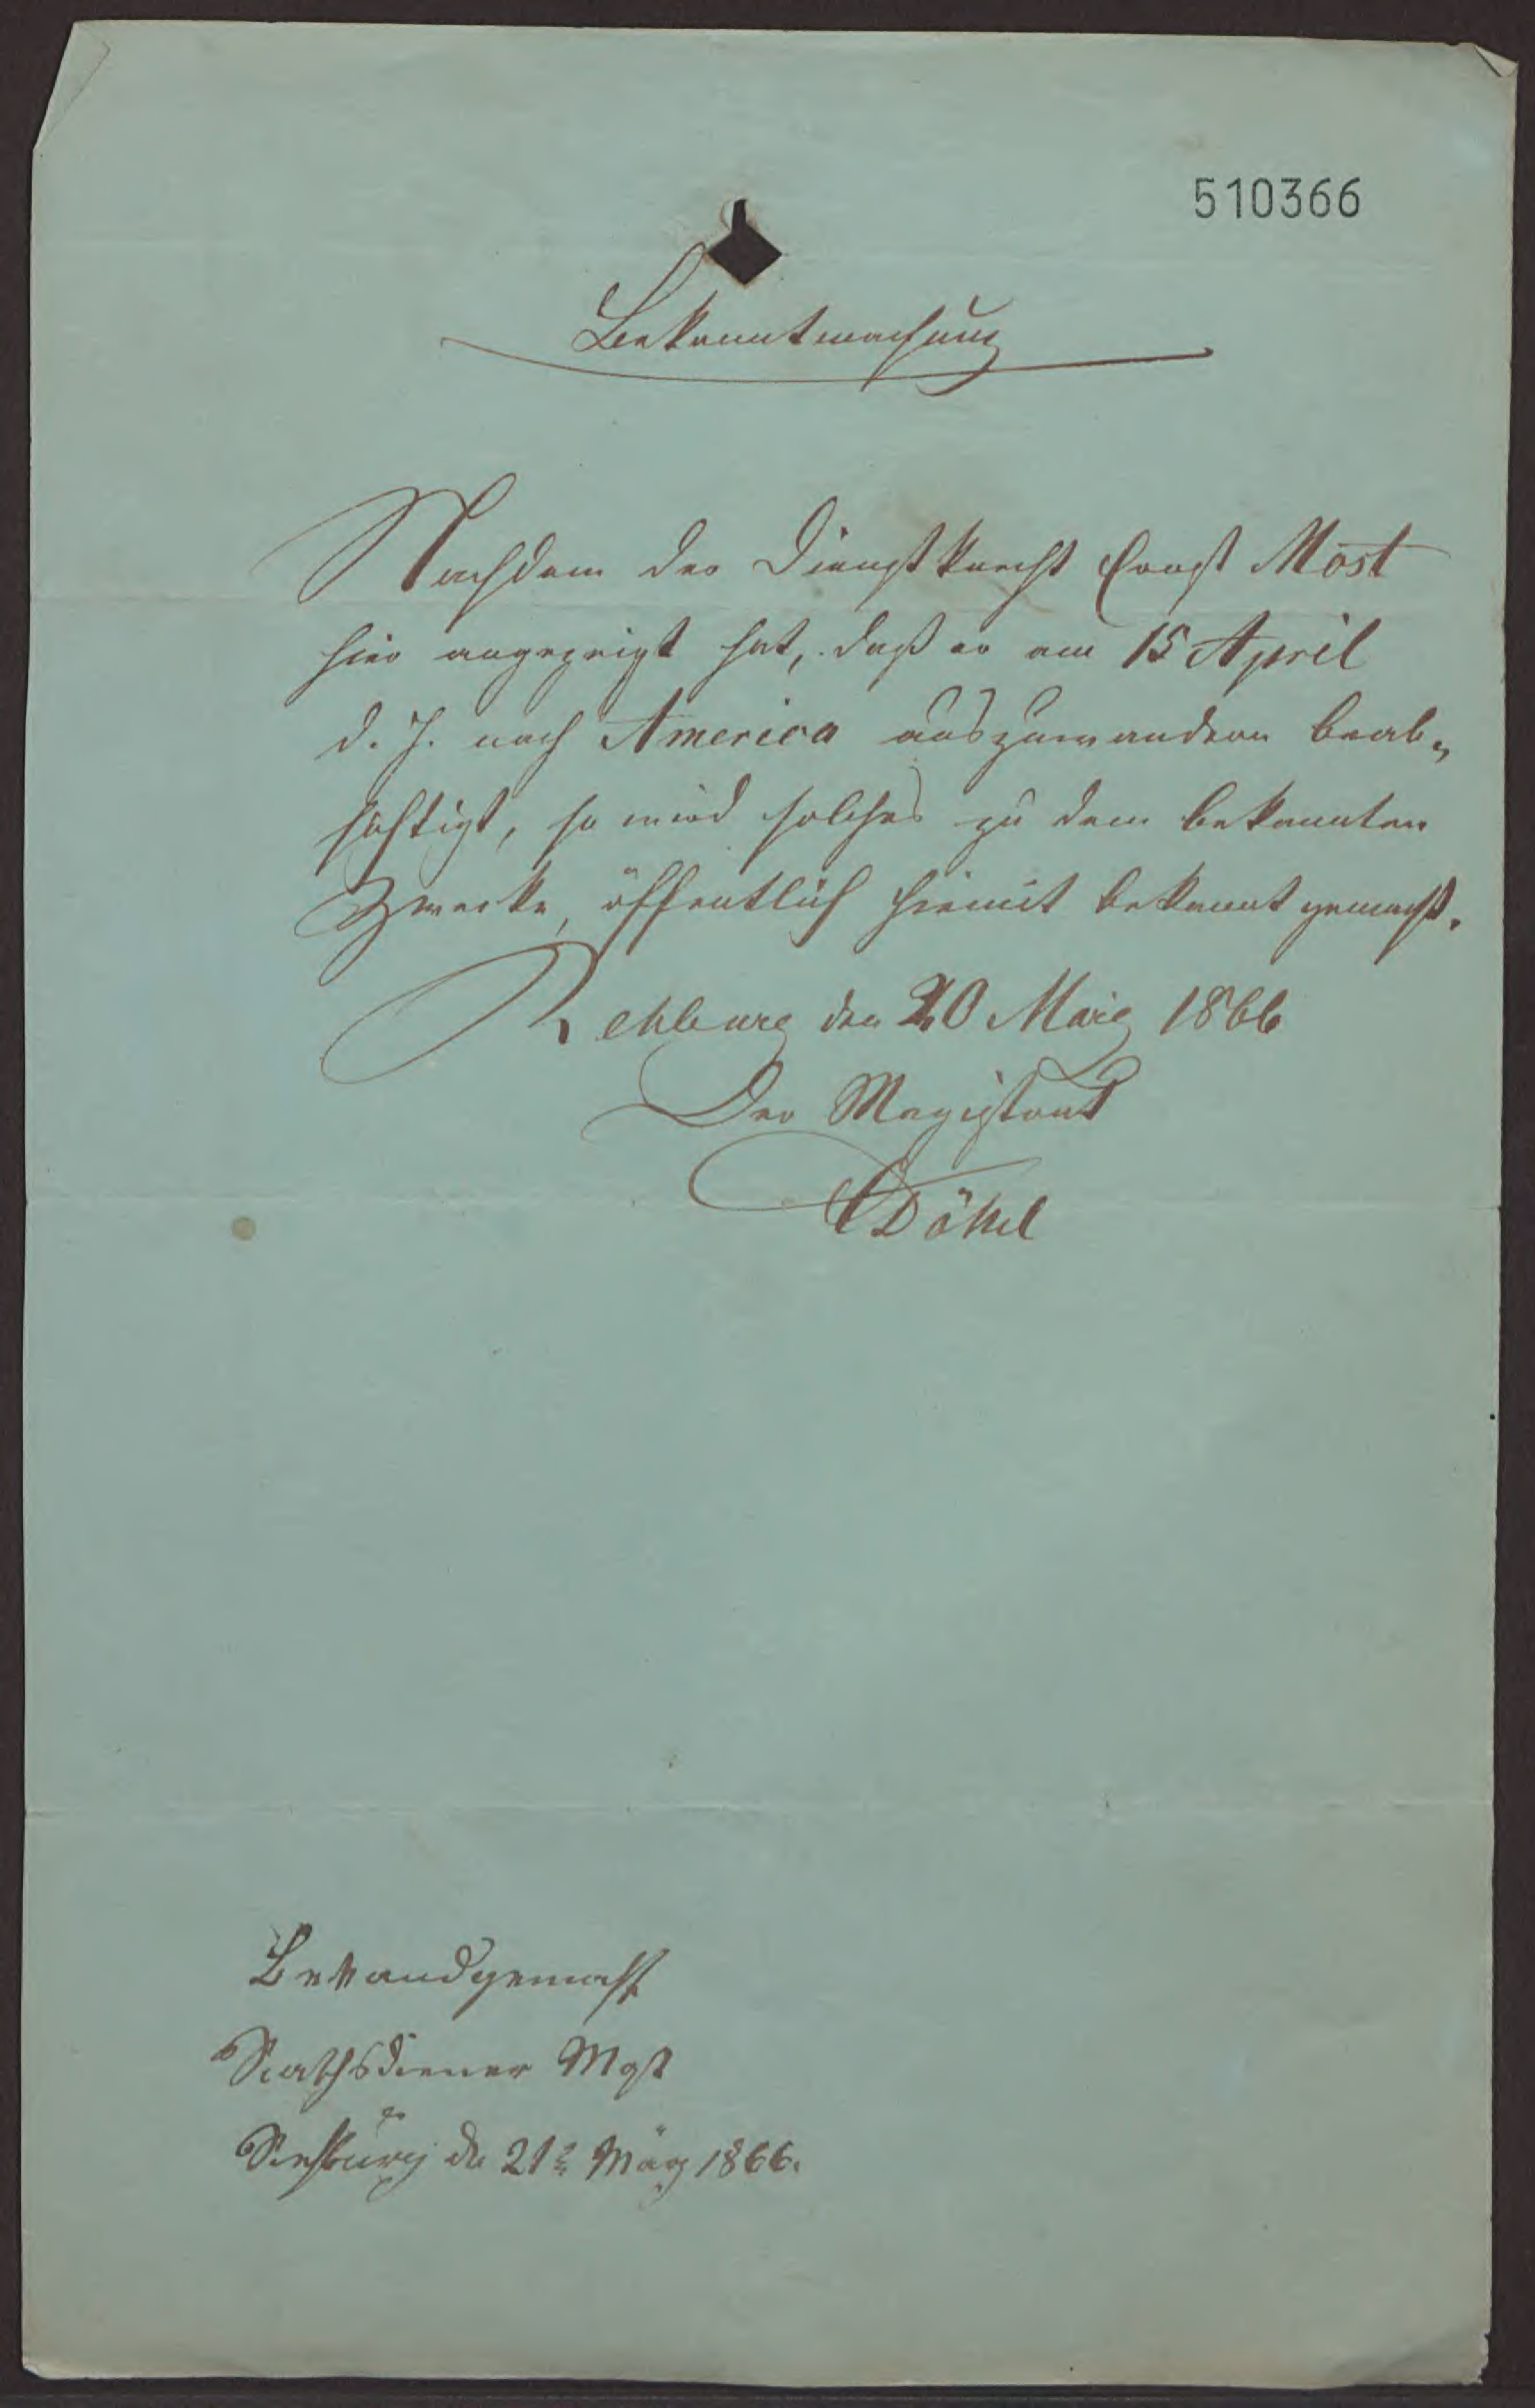 510366
Bekanntmachung
Nachdem der Dienstknecht Ernst Most
hier angezeigt hat, daß er am 15 April
d. J. nach America auszuwandern beab-
sichtigt, so wird solches zu dem bekannten
Zwecke, öffentlich hiemit bekannt gemacht.
Rehburg den 20 März 1866
Der Magistrat
Bekandgemacht
Rathsdiener
Rehburg de 21t März 1866.